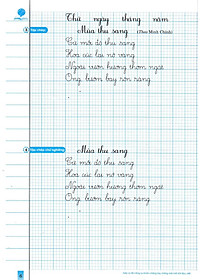 Thứ ngày tháng năm
2 Tập chép
Mùa thu sang (Theo Minh Chính)
Cứ mỗi độ thu sang
Hoa cúc lại nở vàng
Ngoài vườn hương thơm ngát
Ong bướm bay rộn ràng.
3 Tập chép chữ nghiêng
Mùa thu sang
Cứ mỗi độ thu sang
Hoa cúc lại nở vàng
Ngoài vườn hương thơm ngát
Ong bướm bay rộn ràng.